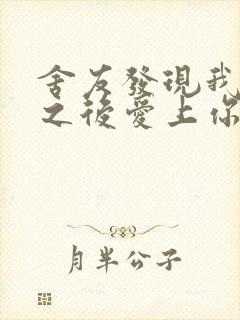 舍友發現我
之後愛上你
月半公子